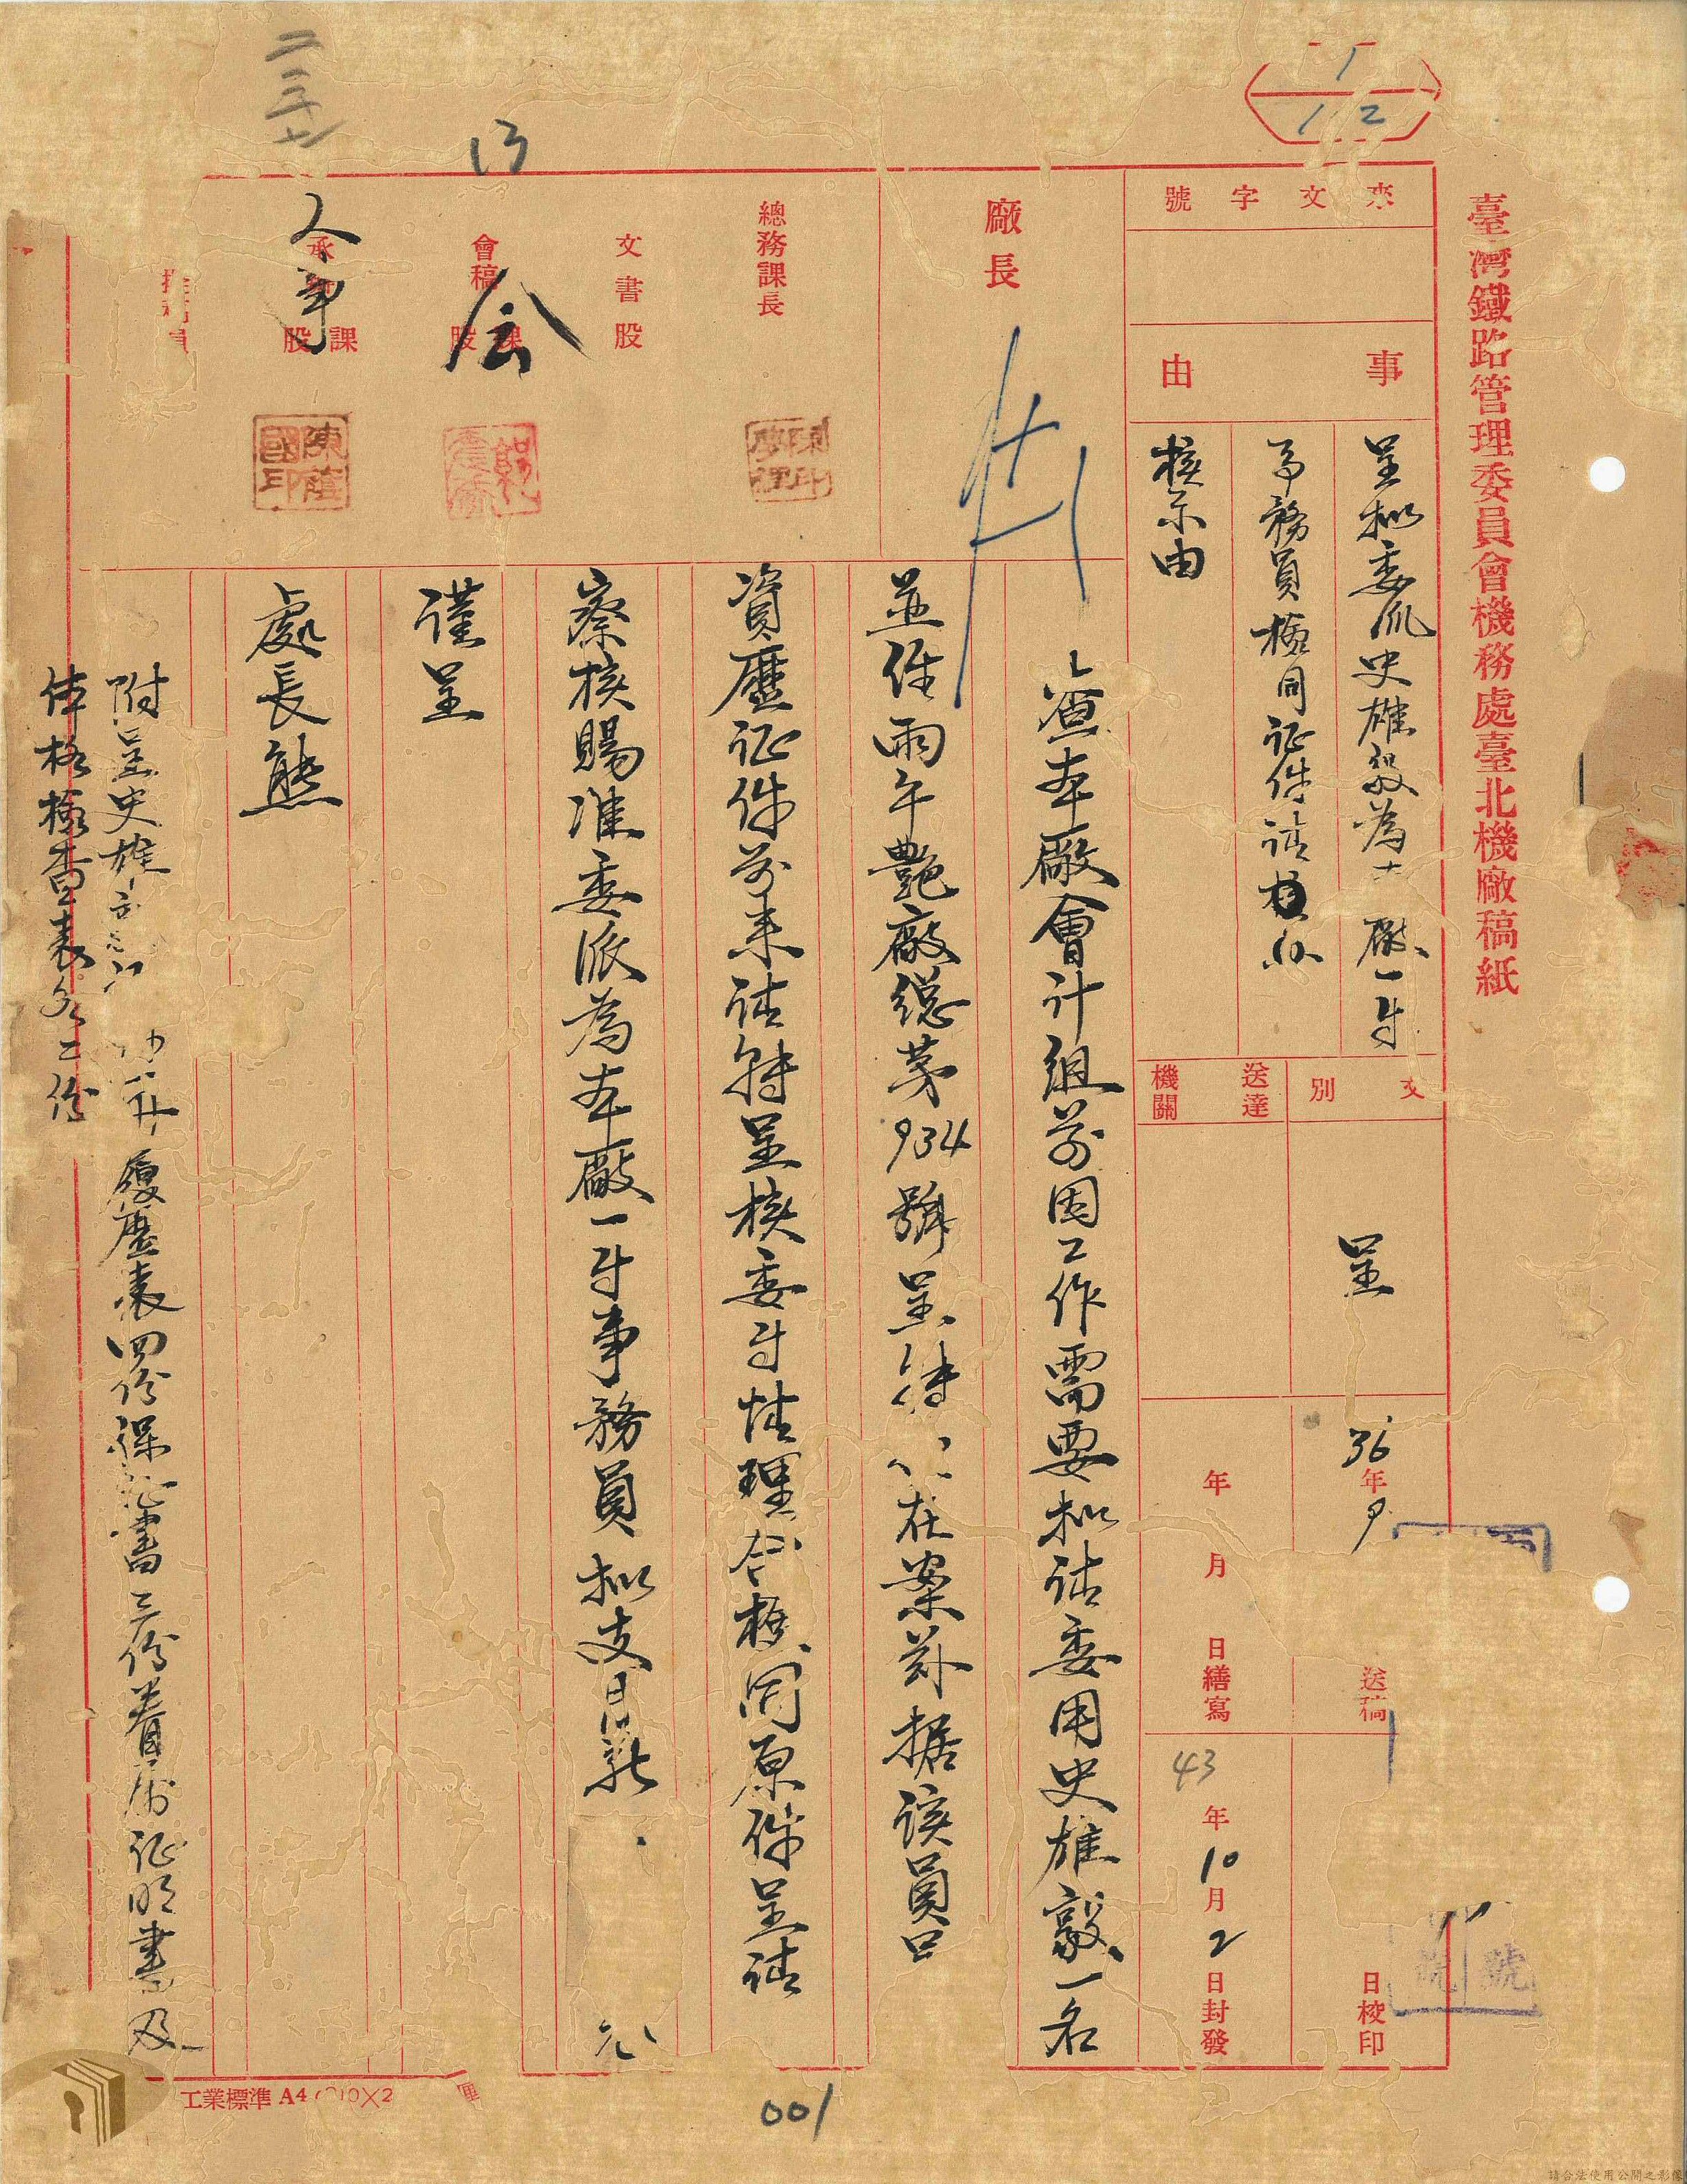 臺灣鐵路管理委員會機務處臺北機廠稿紙
1
12
來文字號
事由
呈擬委派史雄毅為本廠一等
事務員檢同证件請核
核示由
文別
呈
送達機關
36年9
送稿
年月日繕寫
日校印
43年10月2日封發
號
廠長
總務課長
文書股
會稿課股
会
13
承辦課股
人事
二三七
陳蔭國印
查本廠會計組前因工作需要擬請委用史雄毅一名
並經雨午艷廠總第934號呈 在案茲据该員
資歷证件前来請特呈核委等情理合檢同原件呈請
察核賜准委派為本廠一等事務員擬支月薪 元
謹呈
處長熊
附呈史雄 履歷表四份保证書三份眷屬证明書及
体格檢查表各二份
工業標準A4
001
請合法使用公開之影像